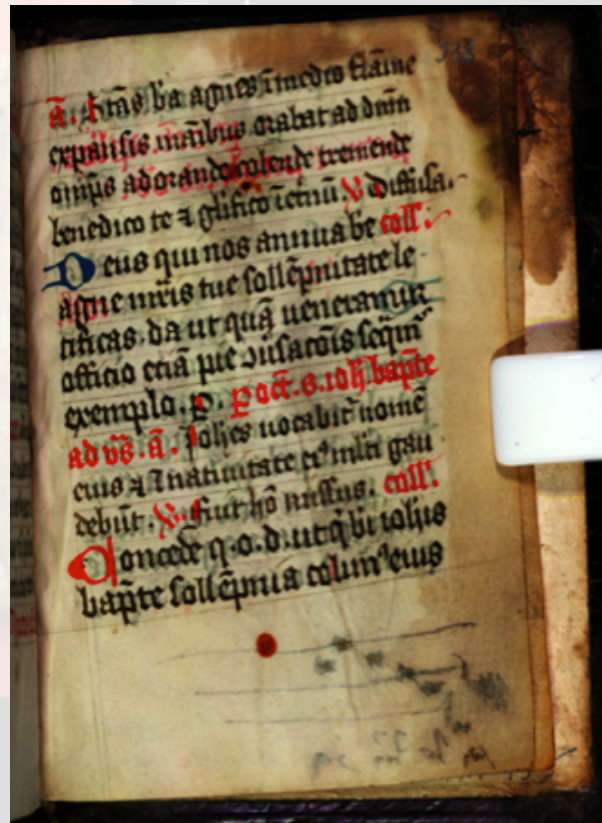 ā. Stās b̄a agnes ī medio flāme
expansis manibus orabat ad dn̄m
omp̄s adorande colende tremende
benedico te ⁊ glīfico ī etnū. V Diffusa.
Deus qui nos annua b̄e coll'.
agne mr̄is tue sollēpnitate le
tificas. da ut quā ueneramur
officio etiā pie 9uersatōis seqm̄r
exemplo. p. P oct. s. ioh. bapt̄e
ad vs̄. ā. Ioh̄es uocabit᷑ nomē
eius ⁊ I natiuitate ei9 ml̄ti gau
debūt. V. Fuit hō missus. coll'.
Concede q. o. d. ut q̄ bt̄i ioh̄is
bapt̄e sollēpnia colim9 eius